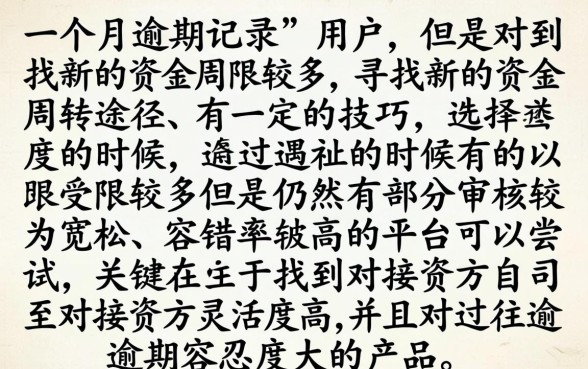 一个月逾期记录”用户，但是对到
找新的资金周限较多，寻找新的资金
周转途径、有一定的技巧，选择
度的时候，过遇祉的时候有的以
眼受限较多但是仍然有部分审核较
为宽松、容错率较高的平台可以尝
试，关键在于找到对接资方自司
至对接资方灵活度高，并且对过往逾
逾期容忍度大的产品。